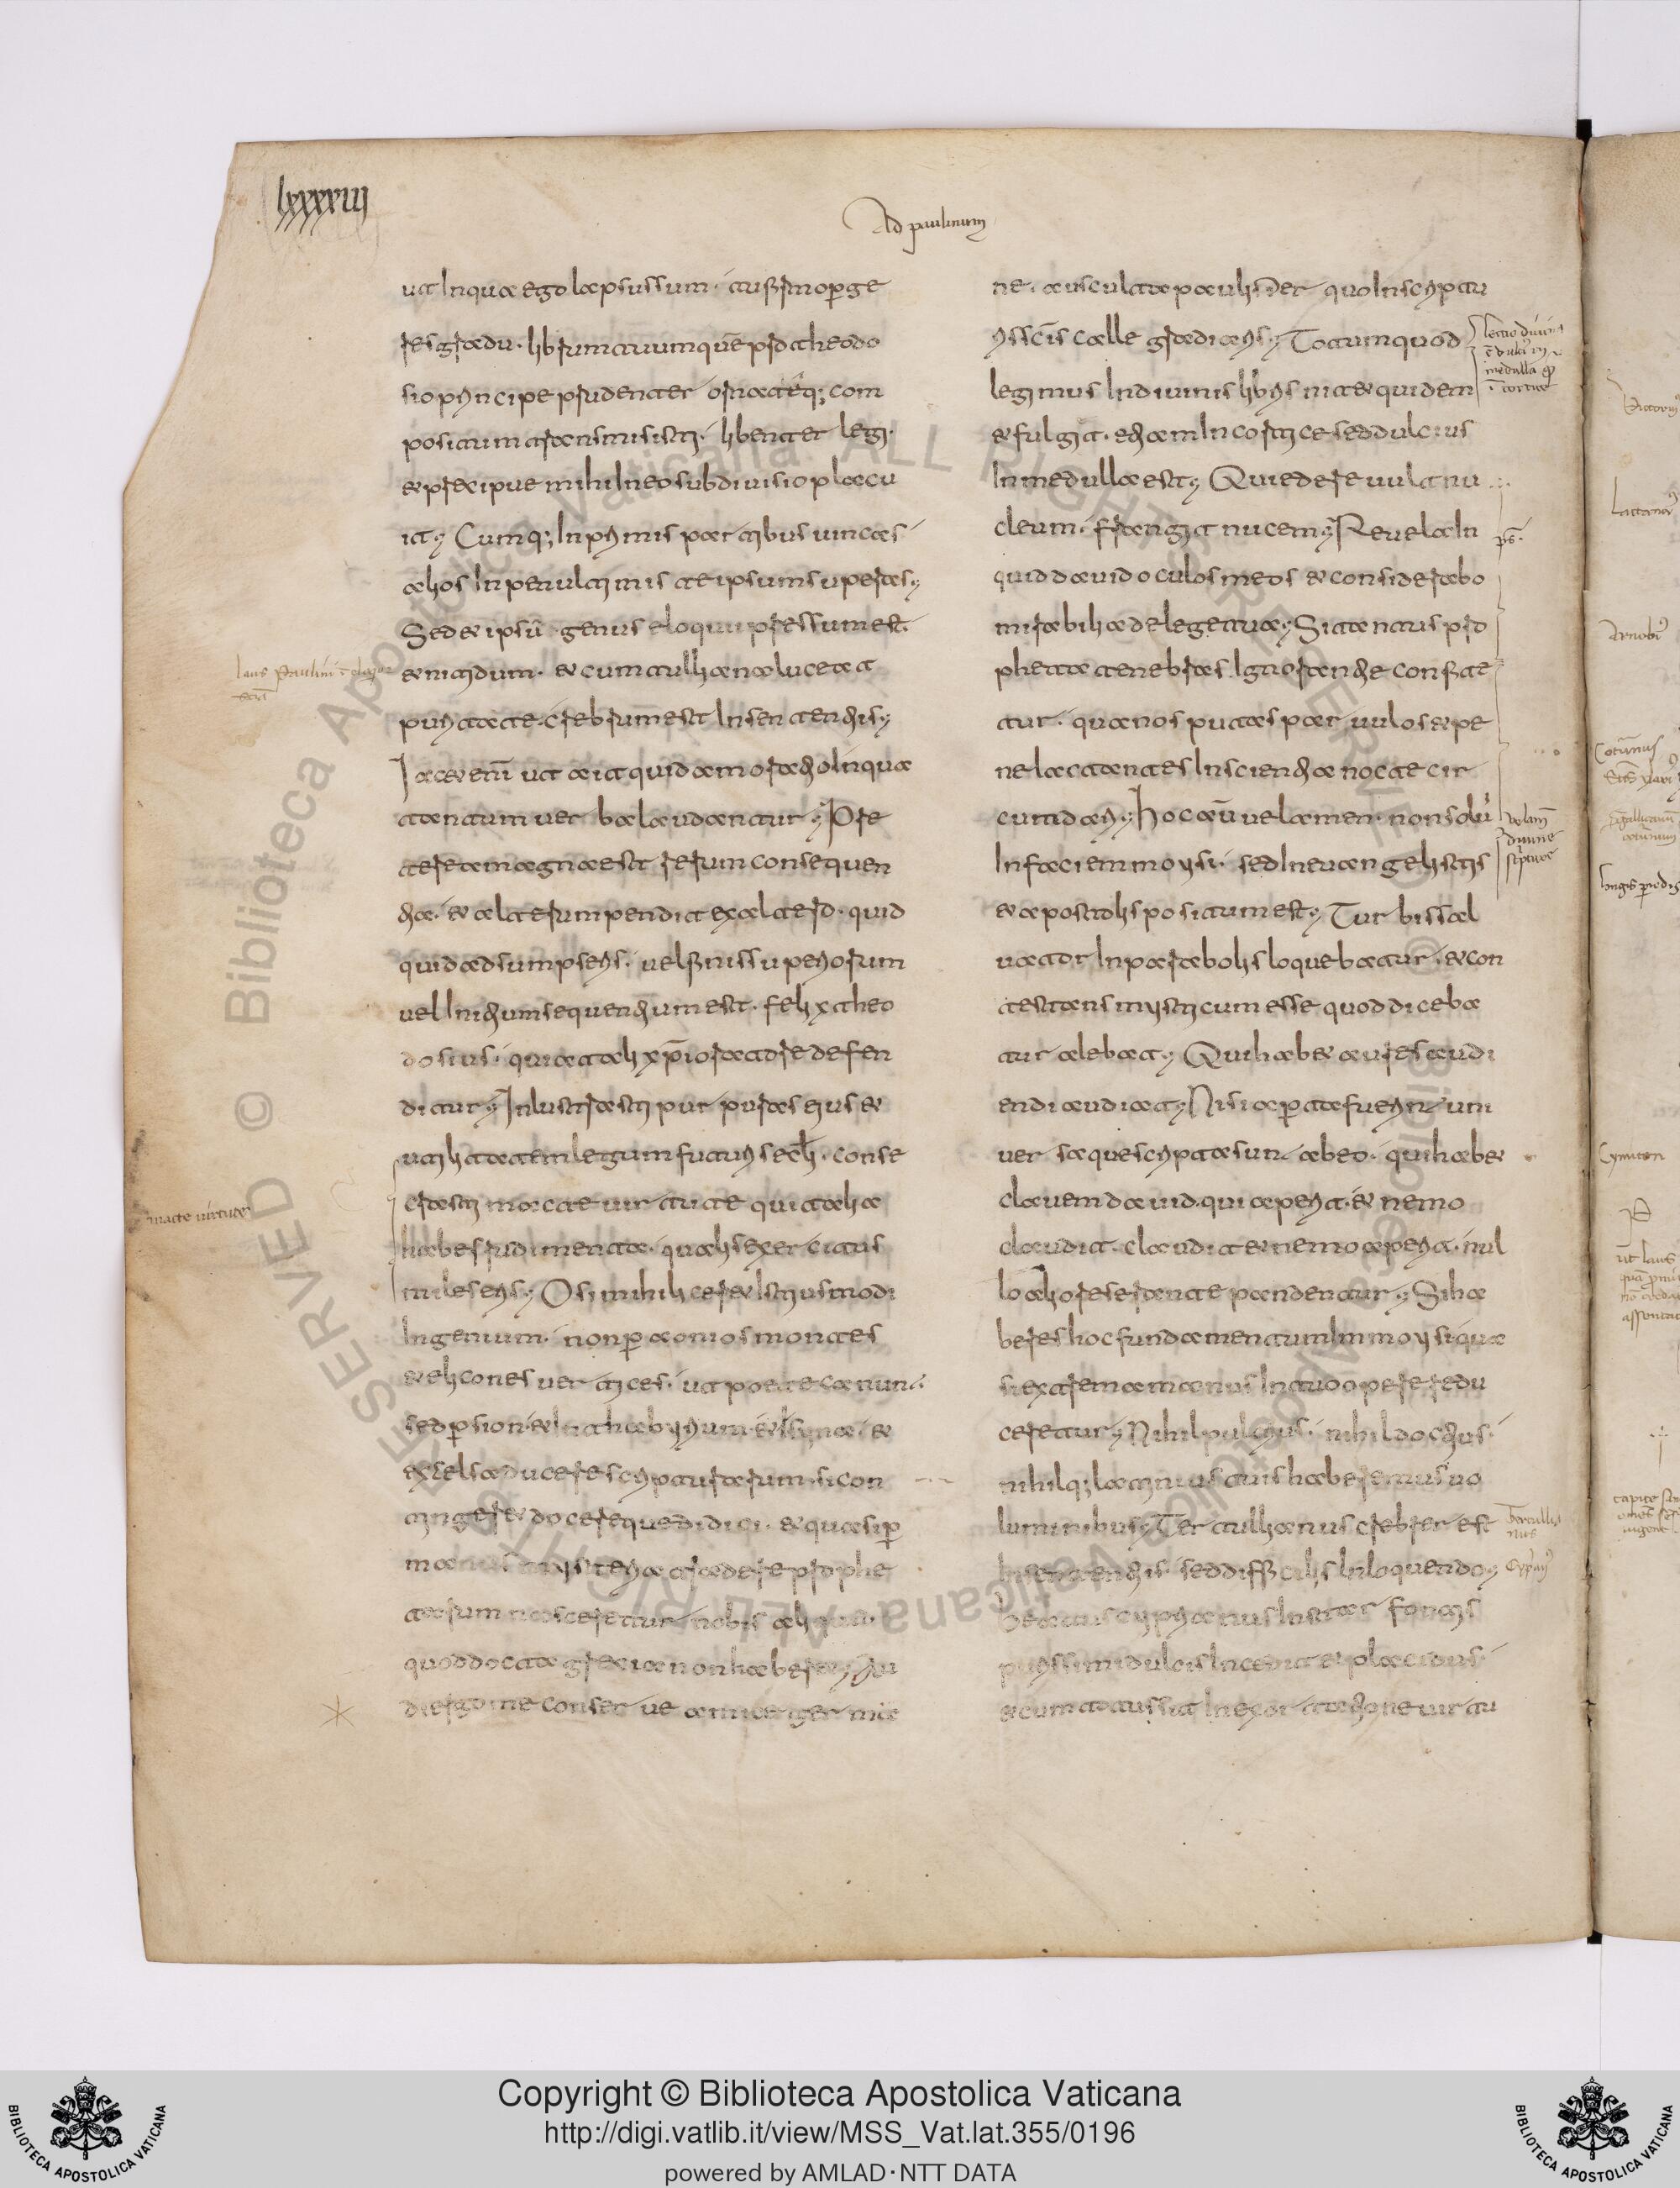 lxxxxiii
Ad paulinum
ut In qua ego lapsus sum. aut firmo ꝑge
re gradu. librum tuum quē pro theodo
sio principe prudenter ornateq; com
positum transmisisti. libenter legi.
& precipue mihi In eo subdivisio placu
it; Cumq; In primis partibus vincas
alios In penultimis te ipsum superas;
Sed & ipsū genus eloquii pressum est.
& nitidum. & cum tulliana luceat
puritate. crebrum est In sententiis;
Iacet enī ut ait quidam oratio In qua
tantum verba laudantur; Pre
terea magna est rerum consequen
tia. & alterum pendit ex altero. quid
quid adsumpseris. vel finis superiorum
vel Initium sequentium est. felix theo
dosius. qui a tali xpī oratore defen
ditur; Inlustrasti purpuras eius &
utilitatem legum futuris sec̄li. conse
crasti macte virtute qui talia
habes rudimenta. qualis exercitatus
miles eris; O si mihi liceret Istiusmodi
Ingenium. non ꝑ aonios montes
& eliconis vertices. ut poete canunt.
sed ꝑ sion. & Itabyrium. & syna. &
excelsa ducere scripturarum. si con
tingeret docere que didici. & quasi ꝑ
manus mysteria tradere prophe
tarum nasceretur nobis aliquid
quod docta grecia non haberet; Au
di ergo me conserve amice germa
ne. ausculta paulisper quo In scriptu
ris scīs calle gradiaris; Totum quod
legimus In divinis libris nitet quidem
& fulget. etiam In cortice sed dulcius
In medulla est; Qui edere vult nu
cleum. frangit nucem; Revela In
quid david oculos meos & considerabo
mirabilia de lege tua; Si tantus pro
pheta tenebras Ignorantie confite
tur. qua nos putas parvulos & pe
ne lactantes Inscientia nocte cir
cumdari; Hoc aū velamen. non solū
In faciem moysi. sed In evangelistis
& apostolis positum est; Turbis sal
vator In parabolis loquebatur. & con
testans mysticum esse quod diceba
tur alebat; Qui habet aures audi
endi audiat; Nisi aꝑta fuerint uni
versa que scripta sunt ab eo. qui habet
clavem david. qui aperit. & nemo
claudit. claudit & nemo aperit. nul
lo alio reserante pandentur; Si ha
beres hoc fundamentum Immo si qua
si extrema manus In tuo opere redu
ceretur; Nihil pulchrius. nihil doctius.
nihilq; latinius tuis haberemus vo
luminibus; Tertullianus creber est
In sententiis sed difficilis In loquendo;
Beatus cyprianus Instar fontis
purissimi dulcis Incedit & placidus.
& cum totus sit In exortatione virtu
laus Paulini
macte virtute
lectio divina
medulla
ps̄.
velam̄
divine
scripture
Tertullia
nus
Cyp̄an9
Copyright © Biblioteca Apostolica Vaticana
http://digi.vatlib.it/view/MSS_Vat.lat.355/0196
powered by AMLAD·NTT DATA
BIBLIOTECA APOSTOLICA VATICANA
BIBLIOTECA APOSTOLICA VATICANA